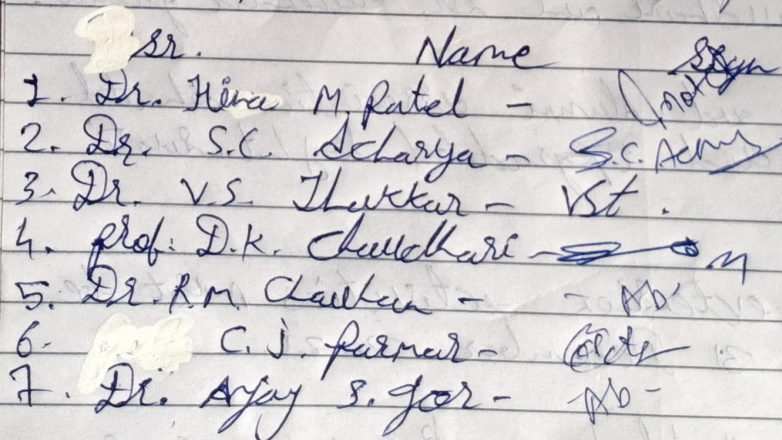 Sr. Name Sign
1. Dr. Hina M. Patel -
2. Dr. S.C. Acharya - S.C. Achy
3. Dr. V.S. Thakkar - VSt.
4. prof. D.K. Chaudhari -
5. Dr. R.M. Chauhan - - Ab-
6. C.J. Parmar -
7. Dr. Anjay S. Gor - -Ab-